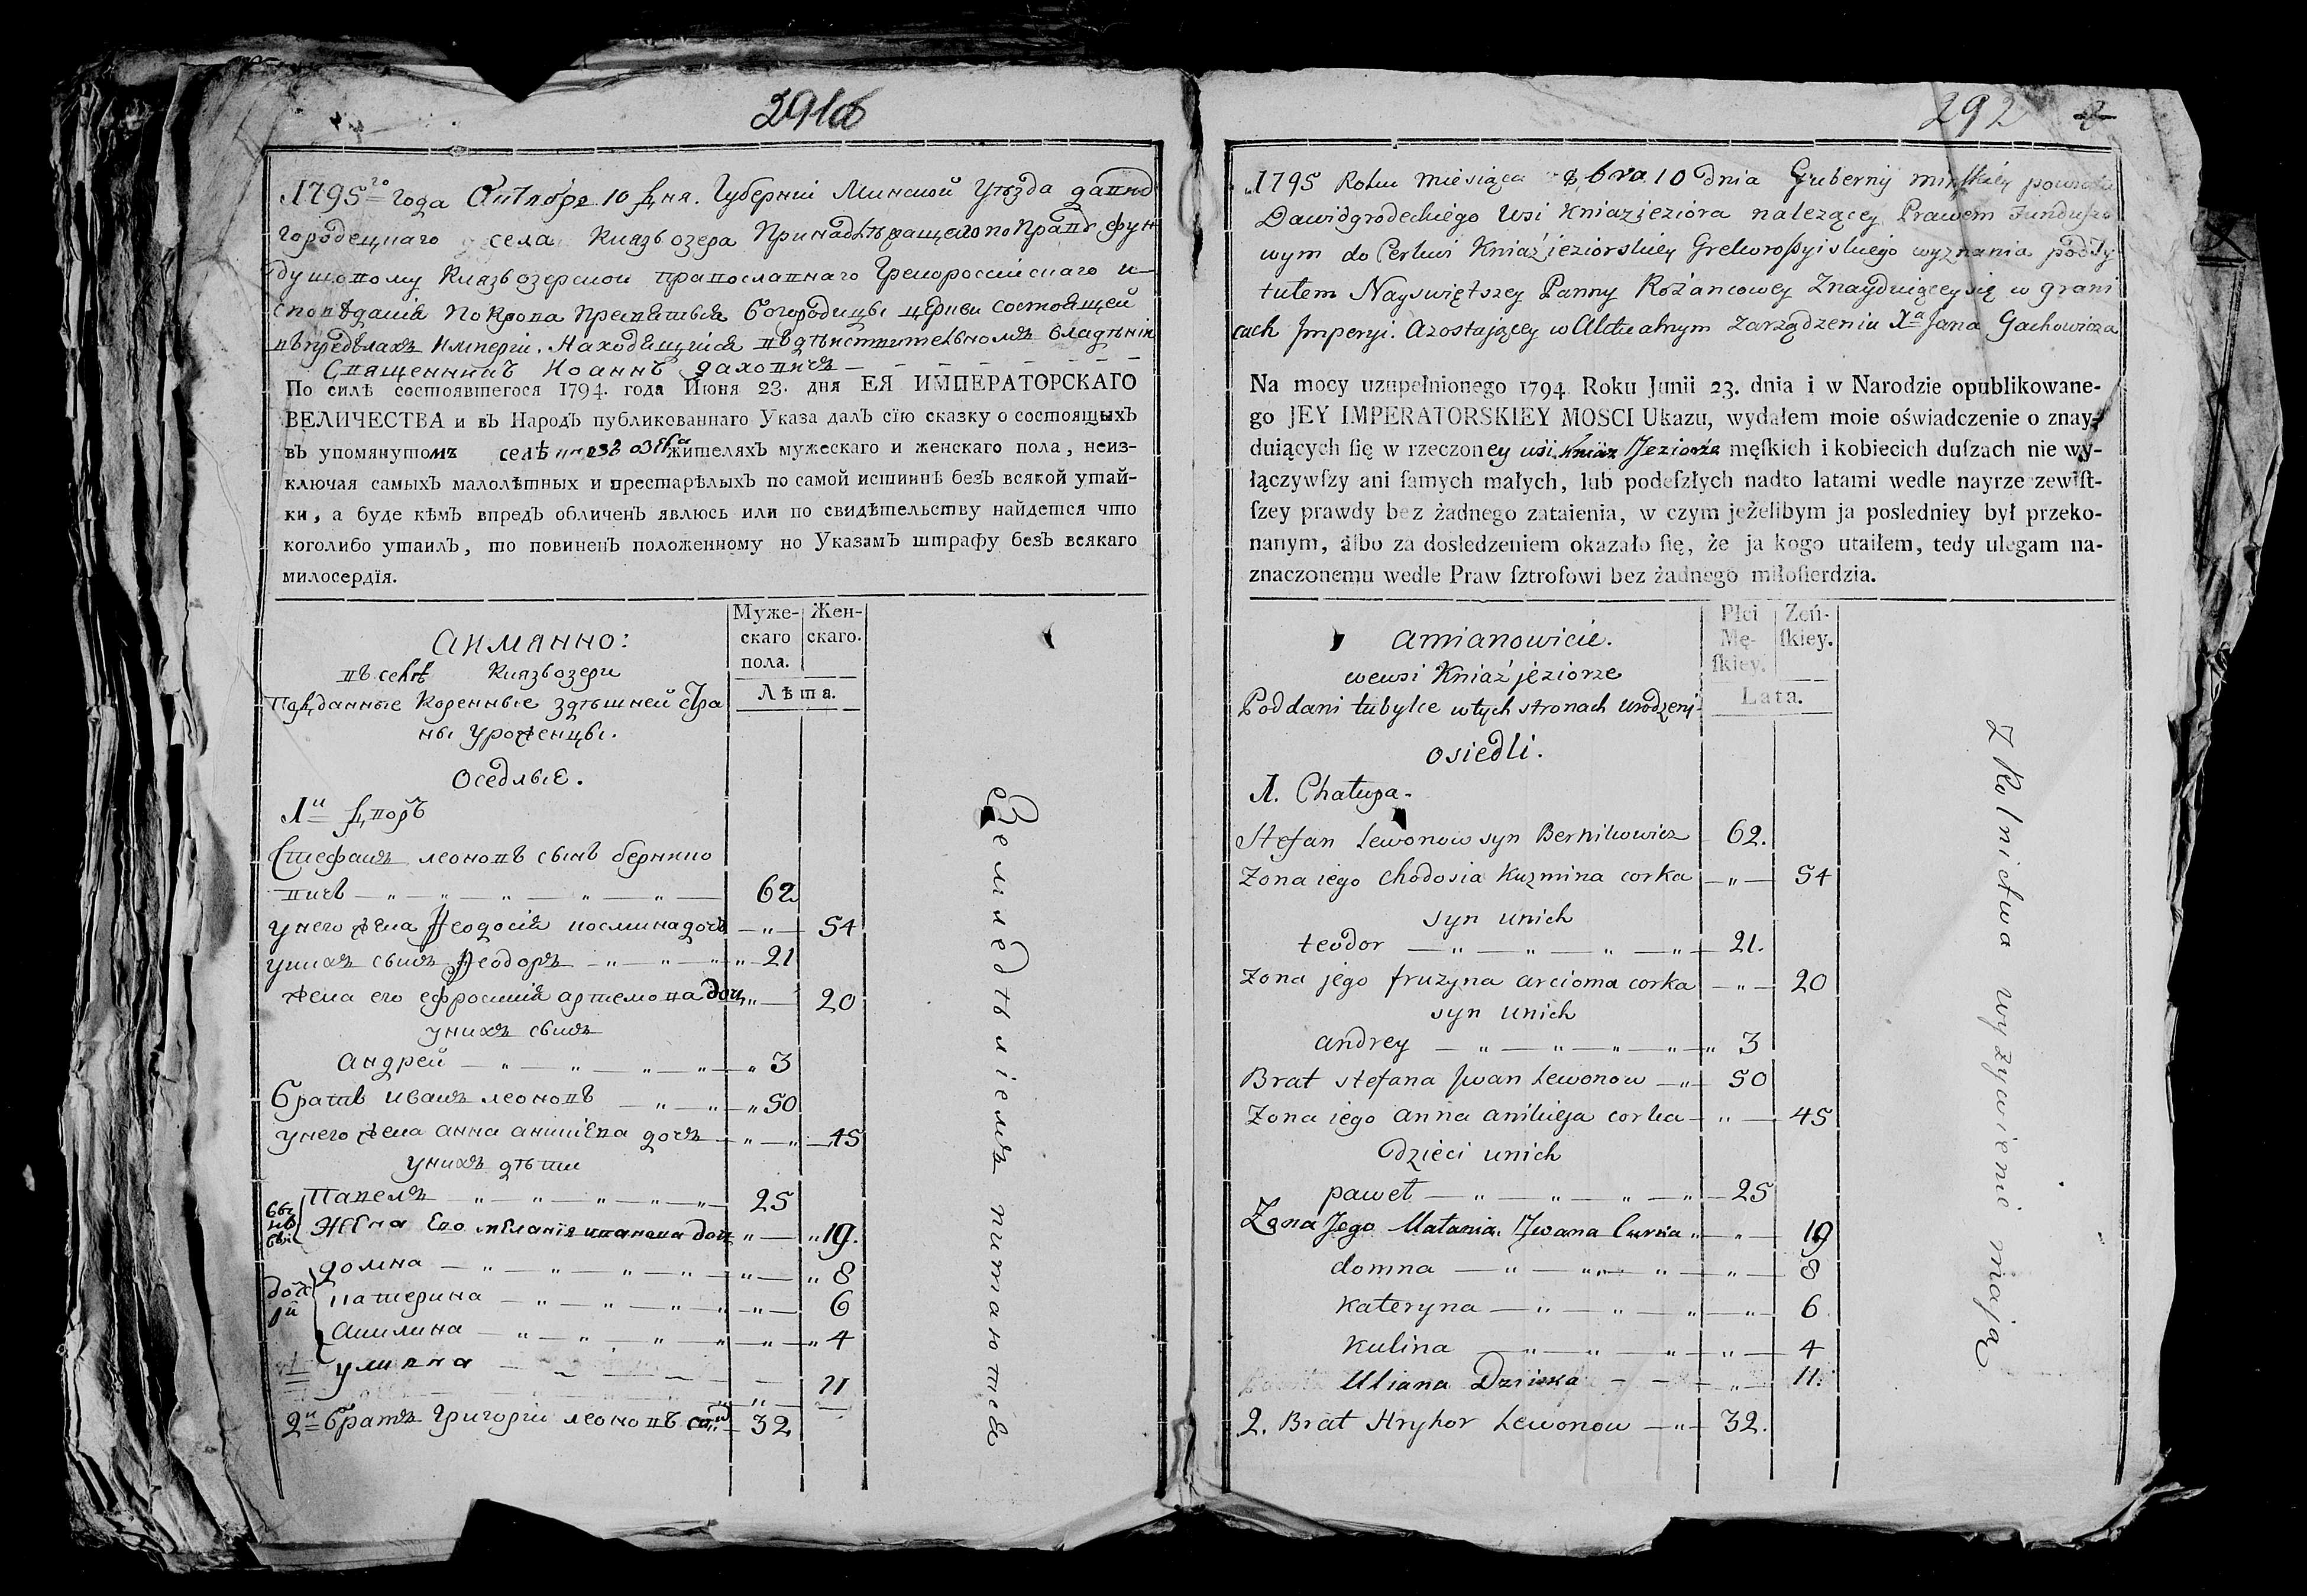 291об
1795го года Октября 10 дня. Губернии Минской уезда давид
городецкаго села Князьозера принадлежащаго по праву фун
душовому Князьозерской православнаго Грекороссийскаго и
споведания Покрова Пресвятыя Богородицы церкви состоящей
въ пределахъ Империи. Находящийся въ действительномъ владении
Священникъ Иоаннъ Гаховичъ —
По силѣ состоявшегося 1794. года Июня 23. дня ЕЯ ИМПЕРАТОРСКАГО
ВЕЛИЧЕСТВА и въ Народъ публикованнаго Указа далъ сїю сказку о состоящыхъ
въ упомянутомъ селѣ Князь озера жителяхъ мужескаго и женскаго пола, неиз-
ключая самыхъ малолѣтныхъ и престарѣлыхъ по самой истиннѣ безъ всякой утай-
ки, а буде кѣмъ впредъ обличенъ явлюсь или по свидѣтельству найдется что
коголибо утаилъ, то повиненъ положенному по Указамъ штрафу безъ всякаго
милосердїя.
Муже-
скаго
пола.
Жен-
скаго.
Лѣта.
Аимянно:
въ селѣ Князьозери
Подданные Коренные здѣшней стра
ны уроженцы.
Оседлые.
1й дворъ
Стефанъ леоновъ сынъ бернико
вичъ 62
у него жена Феодосия космина дочь 54
у нихъ сынъ Феодоръ 21
жена его ефросиния артемова доч 20
у нихъ сынъ
Андрей 3
братъ иванъ леоновъ 50
у него жена анна аникиева дочь 45
у нихъ дѣти
Павелъ 25
Жена Его мелания иванова доч 19.
домна 8
катерина 6
Акилина 4
улияна 11
2й братъ Григории леоновъ сын 32
Земледѣлиемъ питаются
292
1795 Roku miesiąca 8bra 10 dnia Gubernij minskiey powiatu
Dawidgrodeckiego wsi Kniazjeziora nalezącey Prawem Funduszo
wym do Cerkwi Kniaź jeziorskiey Grekoroßyiskiego wyznania pod ty
tułem Nayswiętszey Panny Rożancowey Znayduiącey się w grani
cach Jmperyi. A zostającey w Aktualnym zarządzeniu Xa Jana Gachowicza
Na mocy uzupełnionego 1794 Roku Junii 23. dnia i w Narodzie opublikowane-
go JEY IMPERATORSKIEY MOSCI Ukazu, wydałem moie oświadczenie o znay-
duiących ſię w rzeczoney wsi Kniaz Jeziorze męſkich i kobiecich duſzach nie wy-
łączywſzy ani ſamych małych, lub podeſzłych nadto latami wedle nayrzezewiſt-
ſzey prawdy bez żadnego zataienia, w czym jeżelibym ja posledniey był przeko-
nanym, albo za dosledzeniem okazało ſię, że ja kogo utaiłem, tedy ulegam na-
znaczonemu wedle Praw ſztrofowi bez żadnego miłoſierdzia.
Płci
Mę-
ſkiey.
Zeń-
ſkiey.
Lata.
Amianowicie.
we wsi Kniaź jeziorze
Poddani tubylce w tych stronach urodzeni
osiedli.
1. Chałupa.
Stefan Lewonow syn Bernikowicz 62.
Zona iego Chodosia Kuzmina corka 54
syn unich
teodor 21.
Zona jego fruzyna arcioma corka 20
syn unich
andrey 3
Brat stefana Jwan Lewonow 50
Zona iego anna anikieja corka 45
Dzieci unich
paweł 25
Zona Jego Małania Jwana Curka 19
domna 8
Kateryna 6
Kulina 4
Uliana Dziewka 11.
2. Brat Hryhor Lewonow 32.
Z Rolnictwa wyzywienie mają